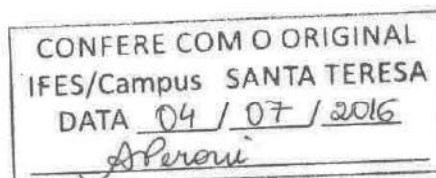 CONFERE COM O ORIGINAL
IFES/Campus SANTA TERESA
DATA 04 / 07 / 2016